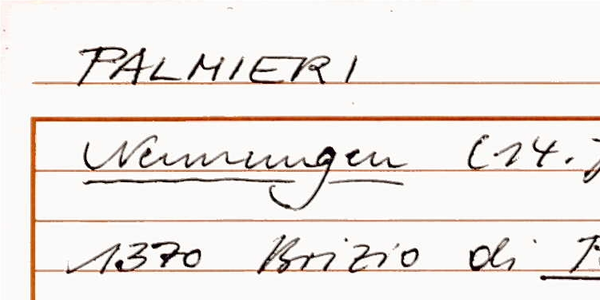 PALMIERI
Nennungen (14.
1370 Brizio di